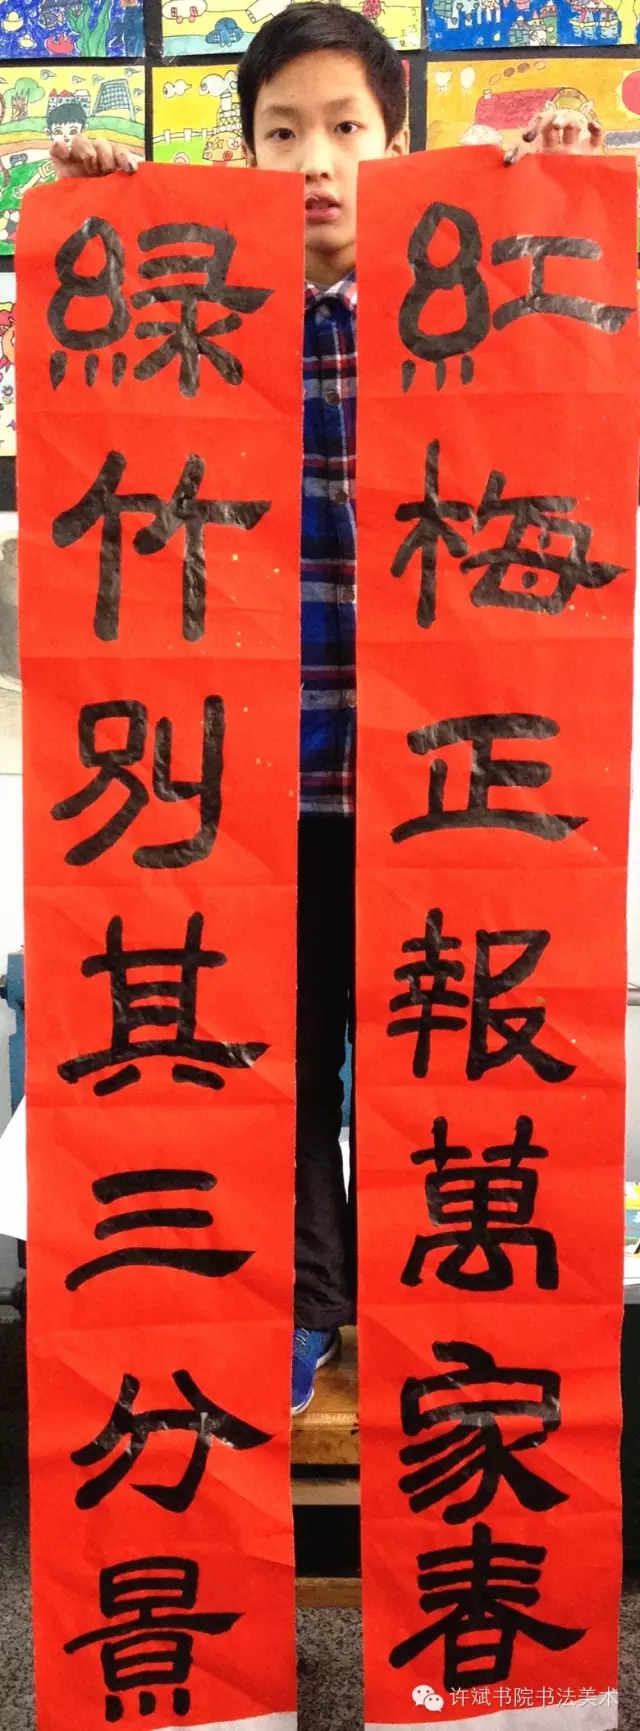 紅梅正報萬家春
綠竹別其三分景
许斌书院书法美术